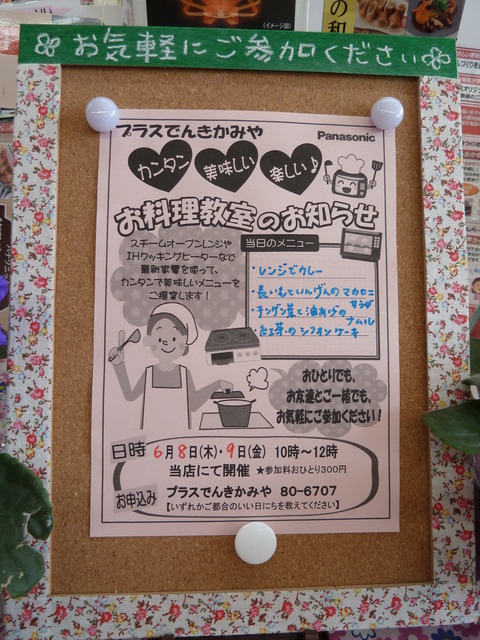 の和
(イメージ図)
お気軽にご参加ください
プラスでんきかみや
Panasonic
カンタン 美味しい 楽しい♪
お料理教室のお知らせ
スチームオーブンレンジや
IHクッキングヒーターなど
最新家電を使って、
カンタンで美味しいメニューを
ご提案します!
当日のメニュー
・レンジでカレー
・長いもといんげんのマカロニサラダ
・チンゲン菜と油あげのナムル
・お工茶のシフォンケーキ
おひとりでも、
お友達とご一緒でも、
お気軽にご参加ください!
日時 6月8日(木)・9日(金) 10時〜12時
当店にて開催 ★参加料おひとり300円
お申込み プラスでんきかみや 80-6707
【いずれかご都合のいい日にちを教えてください】